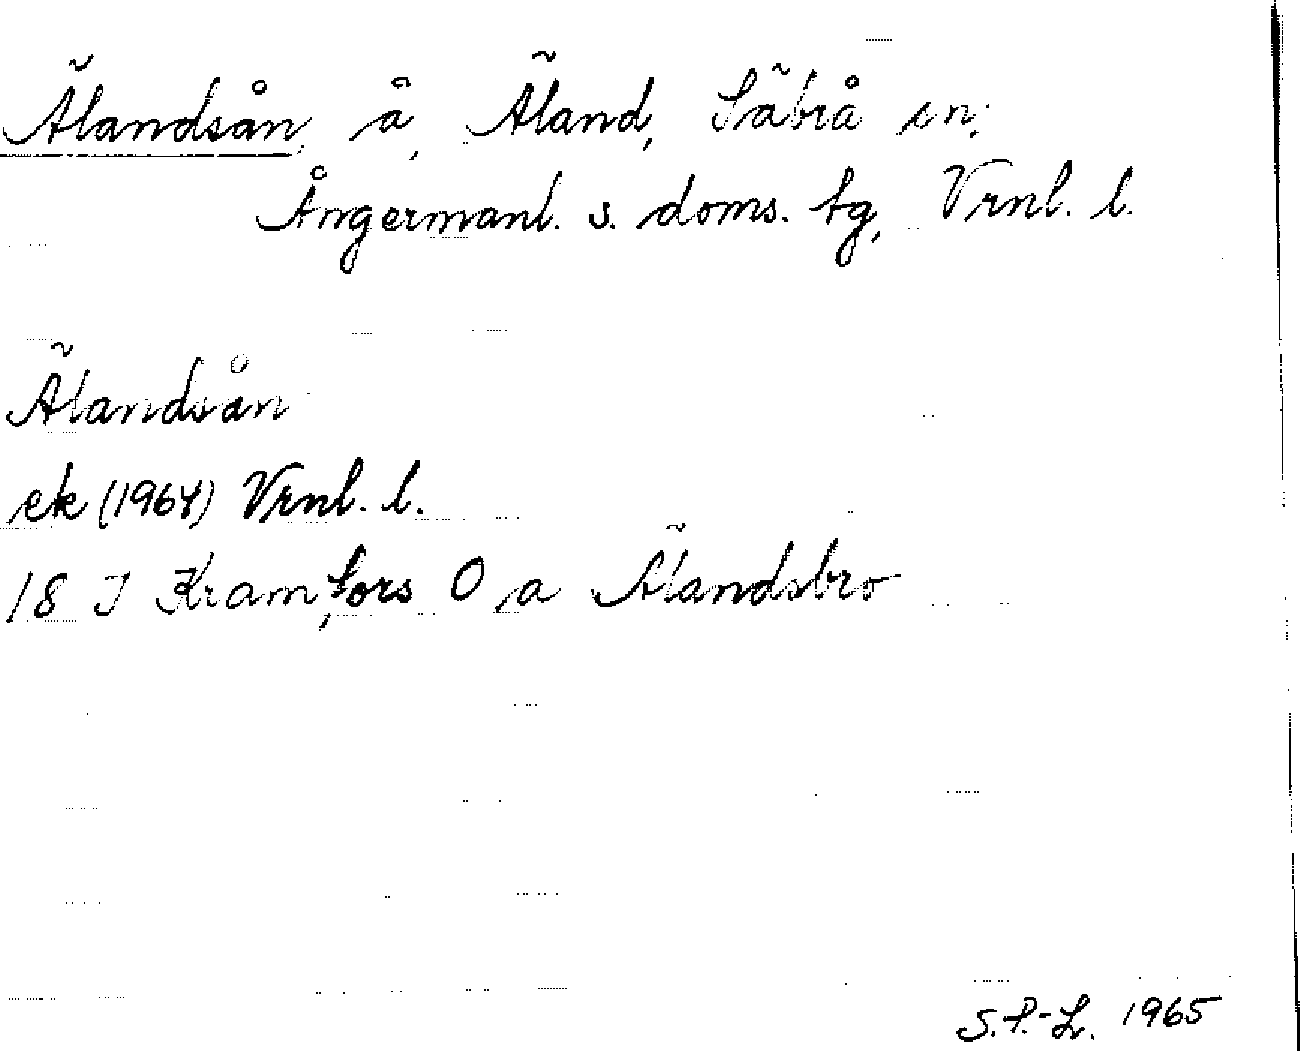 Älandsån, å, Äland, Säbrå sn,
Ångermanl. s. doms. tg, Vrnl. l.
Älandsån
ek (1964) Vrnl. l.
18 I Kramfors O, a Älandsbro
S.P.-L. 1965